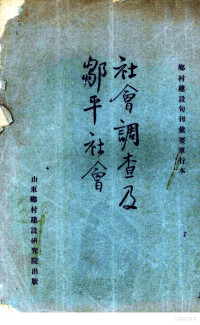 鄉村建設旬刊彙要單行本
社會調查及
鄒平社會
山東鄉村建設研究院出版